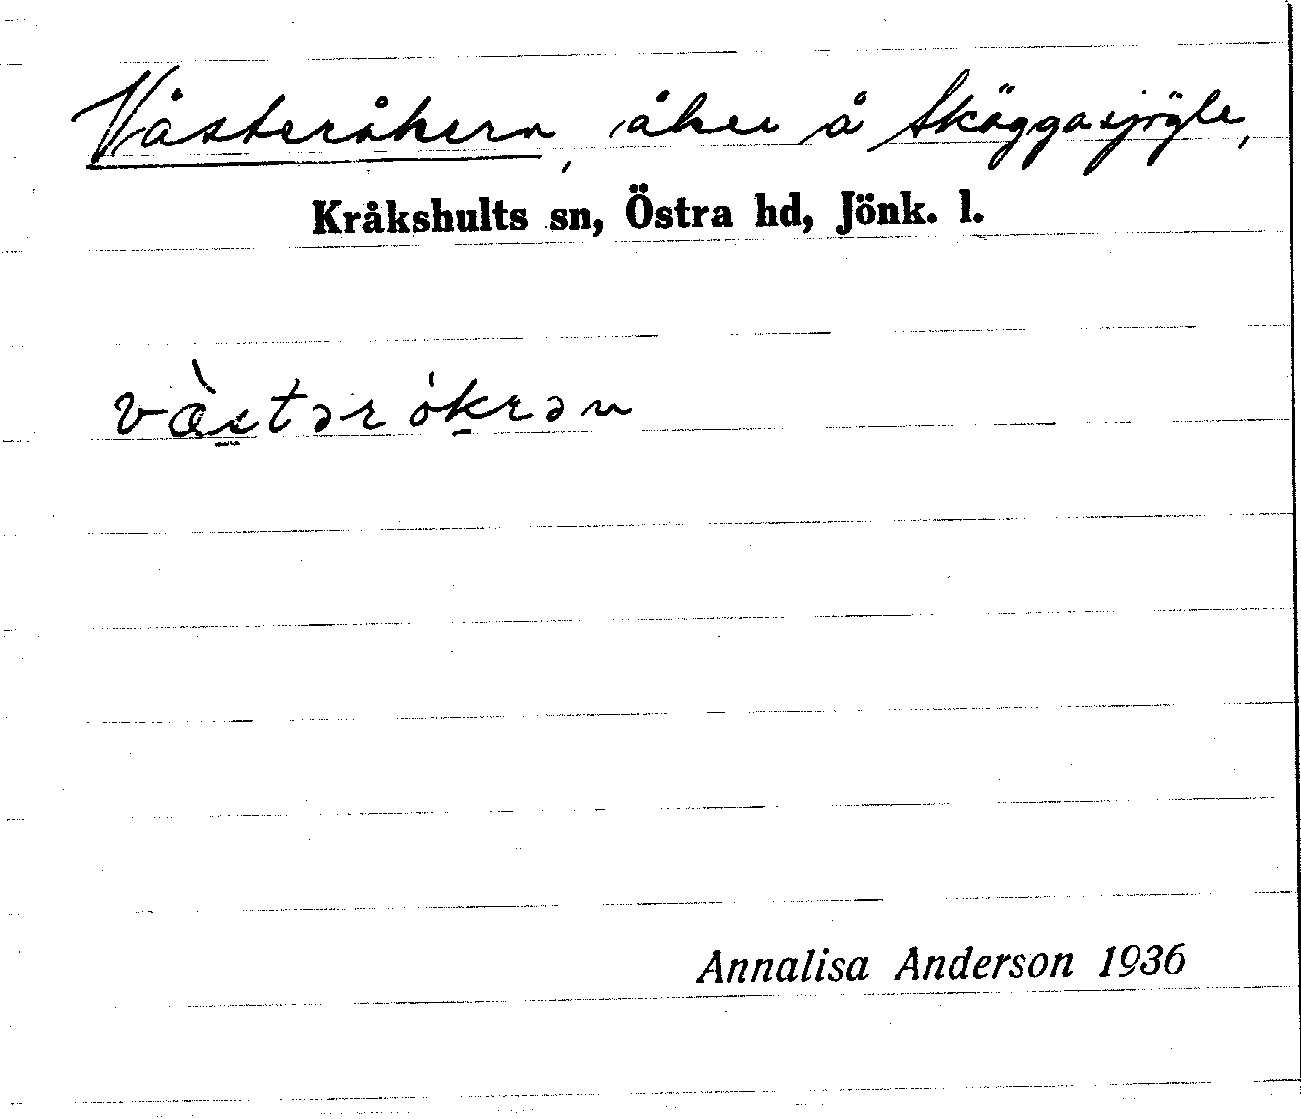 Västeråkern, åker å Skäggasjögle,
Kråkshults sn, Östra hd, Jönk. l.
væ̀stər ókrən
Annalisa Anderson 1936